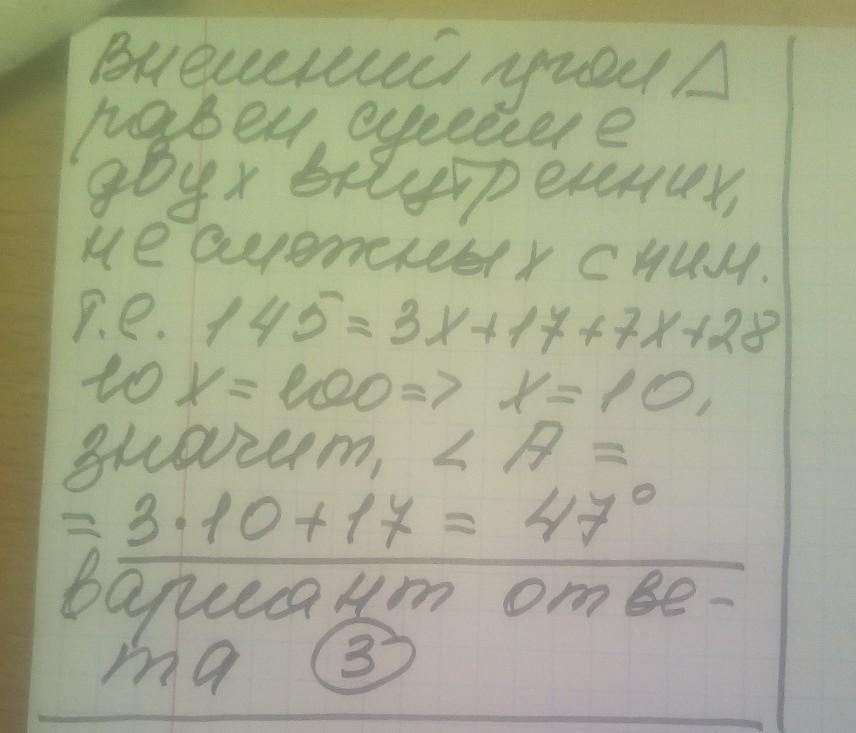 Внешний угол △
равен сумме
двух внутренних,
не смежных с ним.
Т.е. 145 = 3х+17+7х+28
10х = 100 => х = 10,
значит, < А =
= 3·10+17 = 47°
вариант отве-
та 3